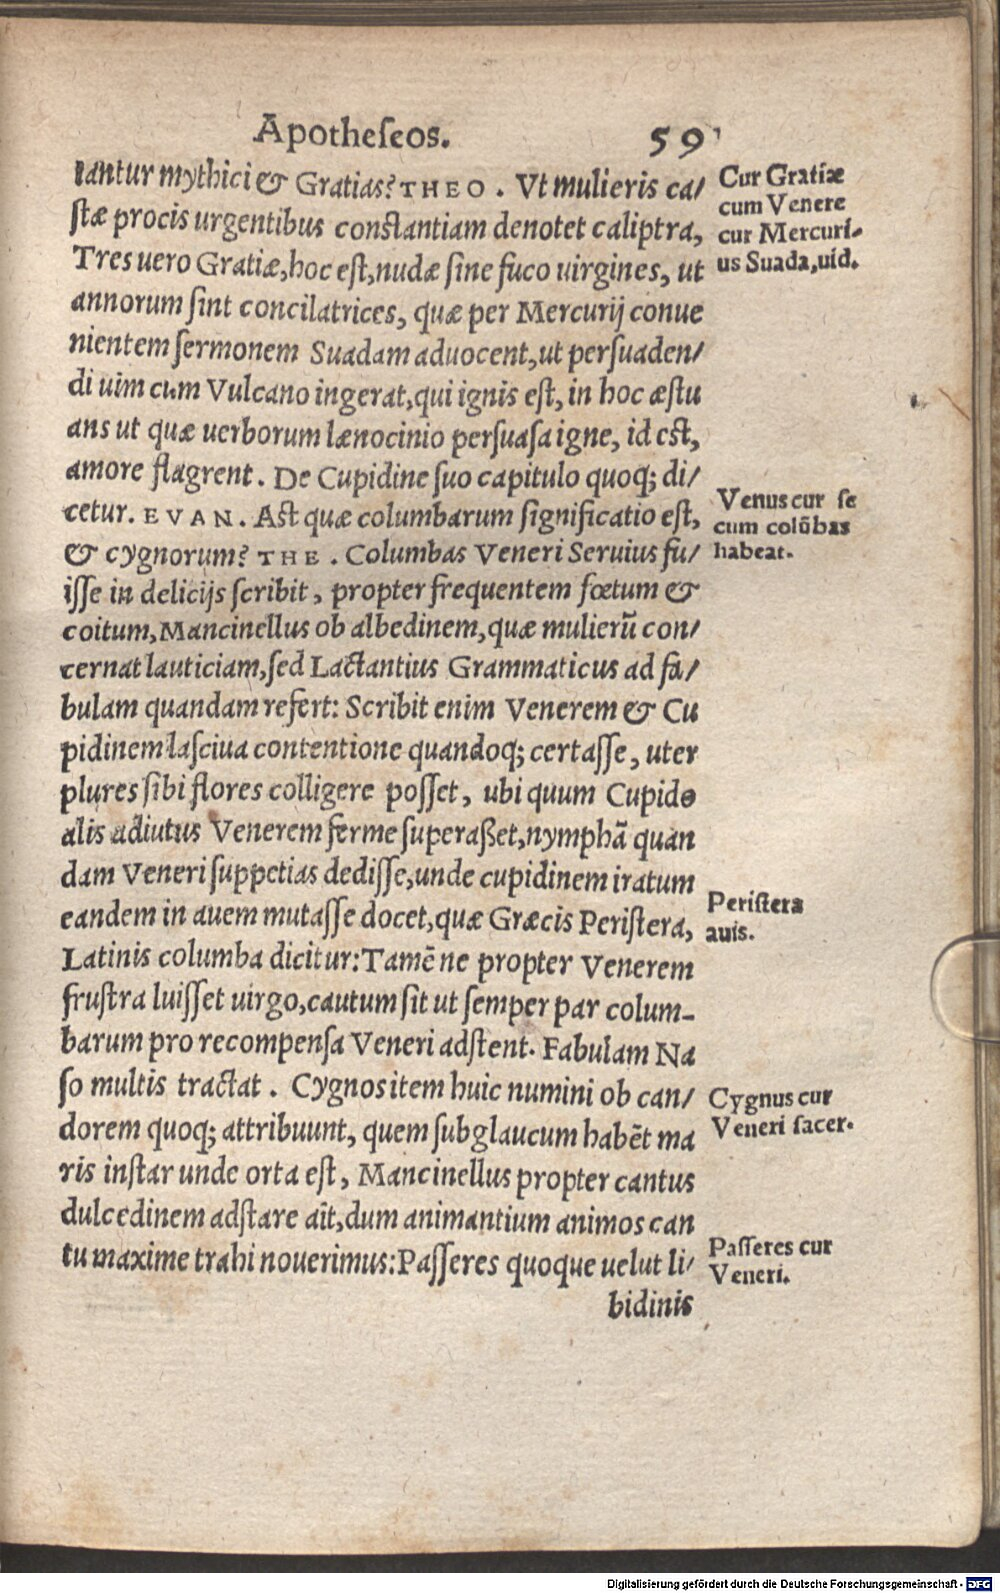 Apotheseos. 59
tantur mythici & Gratias? THEO. Vt mulieris ca/
stæ procis urgentibus constantiam denotet caliptra,
Tres uero Gratiæ, hoc est, nudæ sine fuco uirgines, ut
annorum sint concilatrices, quæ per Mercurij conue
nientem sermonem Suadam aduocent, ut persuaden/
di uim cum Vulcano ingerat, qui ignis est, in hoc æstu
ans ut quæ uerborum lænocinio persuasa igne, id est,
amore flagrent. De Cupidine suo capitulo quoq; di/
cetur. EVAN. Ast quæ columbarum significatio est,
& cygnorum? THE. Columbas Veneri Seruius fu/
isse in delicijs scribit, propter frequentem fœtum &
coitum, Mancinellus ob albedinem, quæ mulierũ con/
cernat lauticiam, sed Lactantius Grammaticus ad fa/
bulam quandam refert: Scribit enim Venerem & Cu
pidinem lasciua contentione quandoq; certasse, uter
plures sibi flores colligere posset, ubi quum Cupido
alis adiutus Venerem ferme superaßet, nymphã quan
dam Veneri suppetias dedisse, unde cupidinem iratum
eandem in auem mutasse docet, quæ Græcis Peristera,
Latinis columba dicitur: Tamẽ ne propter Venerem
frustra luisset uirgo, cautum sit ut semper par colum-
barum pro recompensa Veneri adstent. Fabulam Na
so multis tractat. Cygnos item huic numini ob can/
dorem quoq; attribuunt, quem subglaucum habẽt ma
ris instar unde orta est, Mancinellus propter cantus
dulcedinem adstare aĩt, dum animantium animos can
tu maxime trahi nouerimus: Passeres quoque uelut li/
bidinis
Cur Gratiæ
cum Venere
cur Mercuri-
us Suada, uid.
Venus cur se
cum colũbas
habeat.
Peristera
auis.
Cygnus cur
Veneri sacer.
Passeres cur
Veneri.
Digitalisierung gefördert durch die Deutsche Forschungsgemeinschaft - DFG